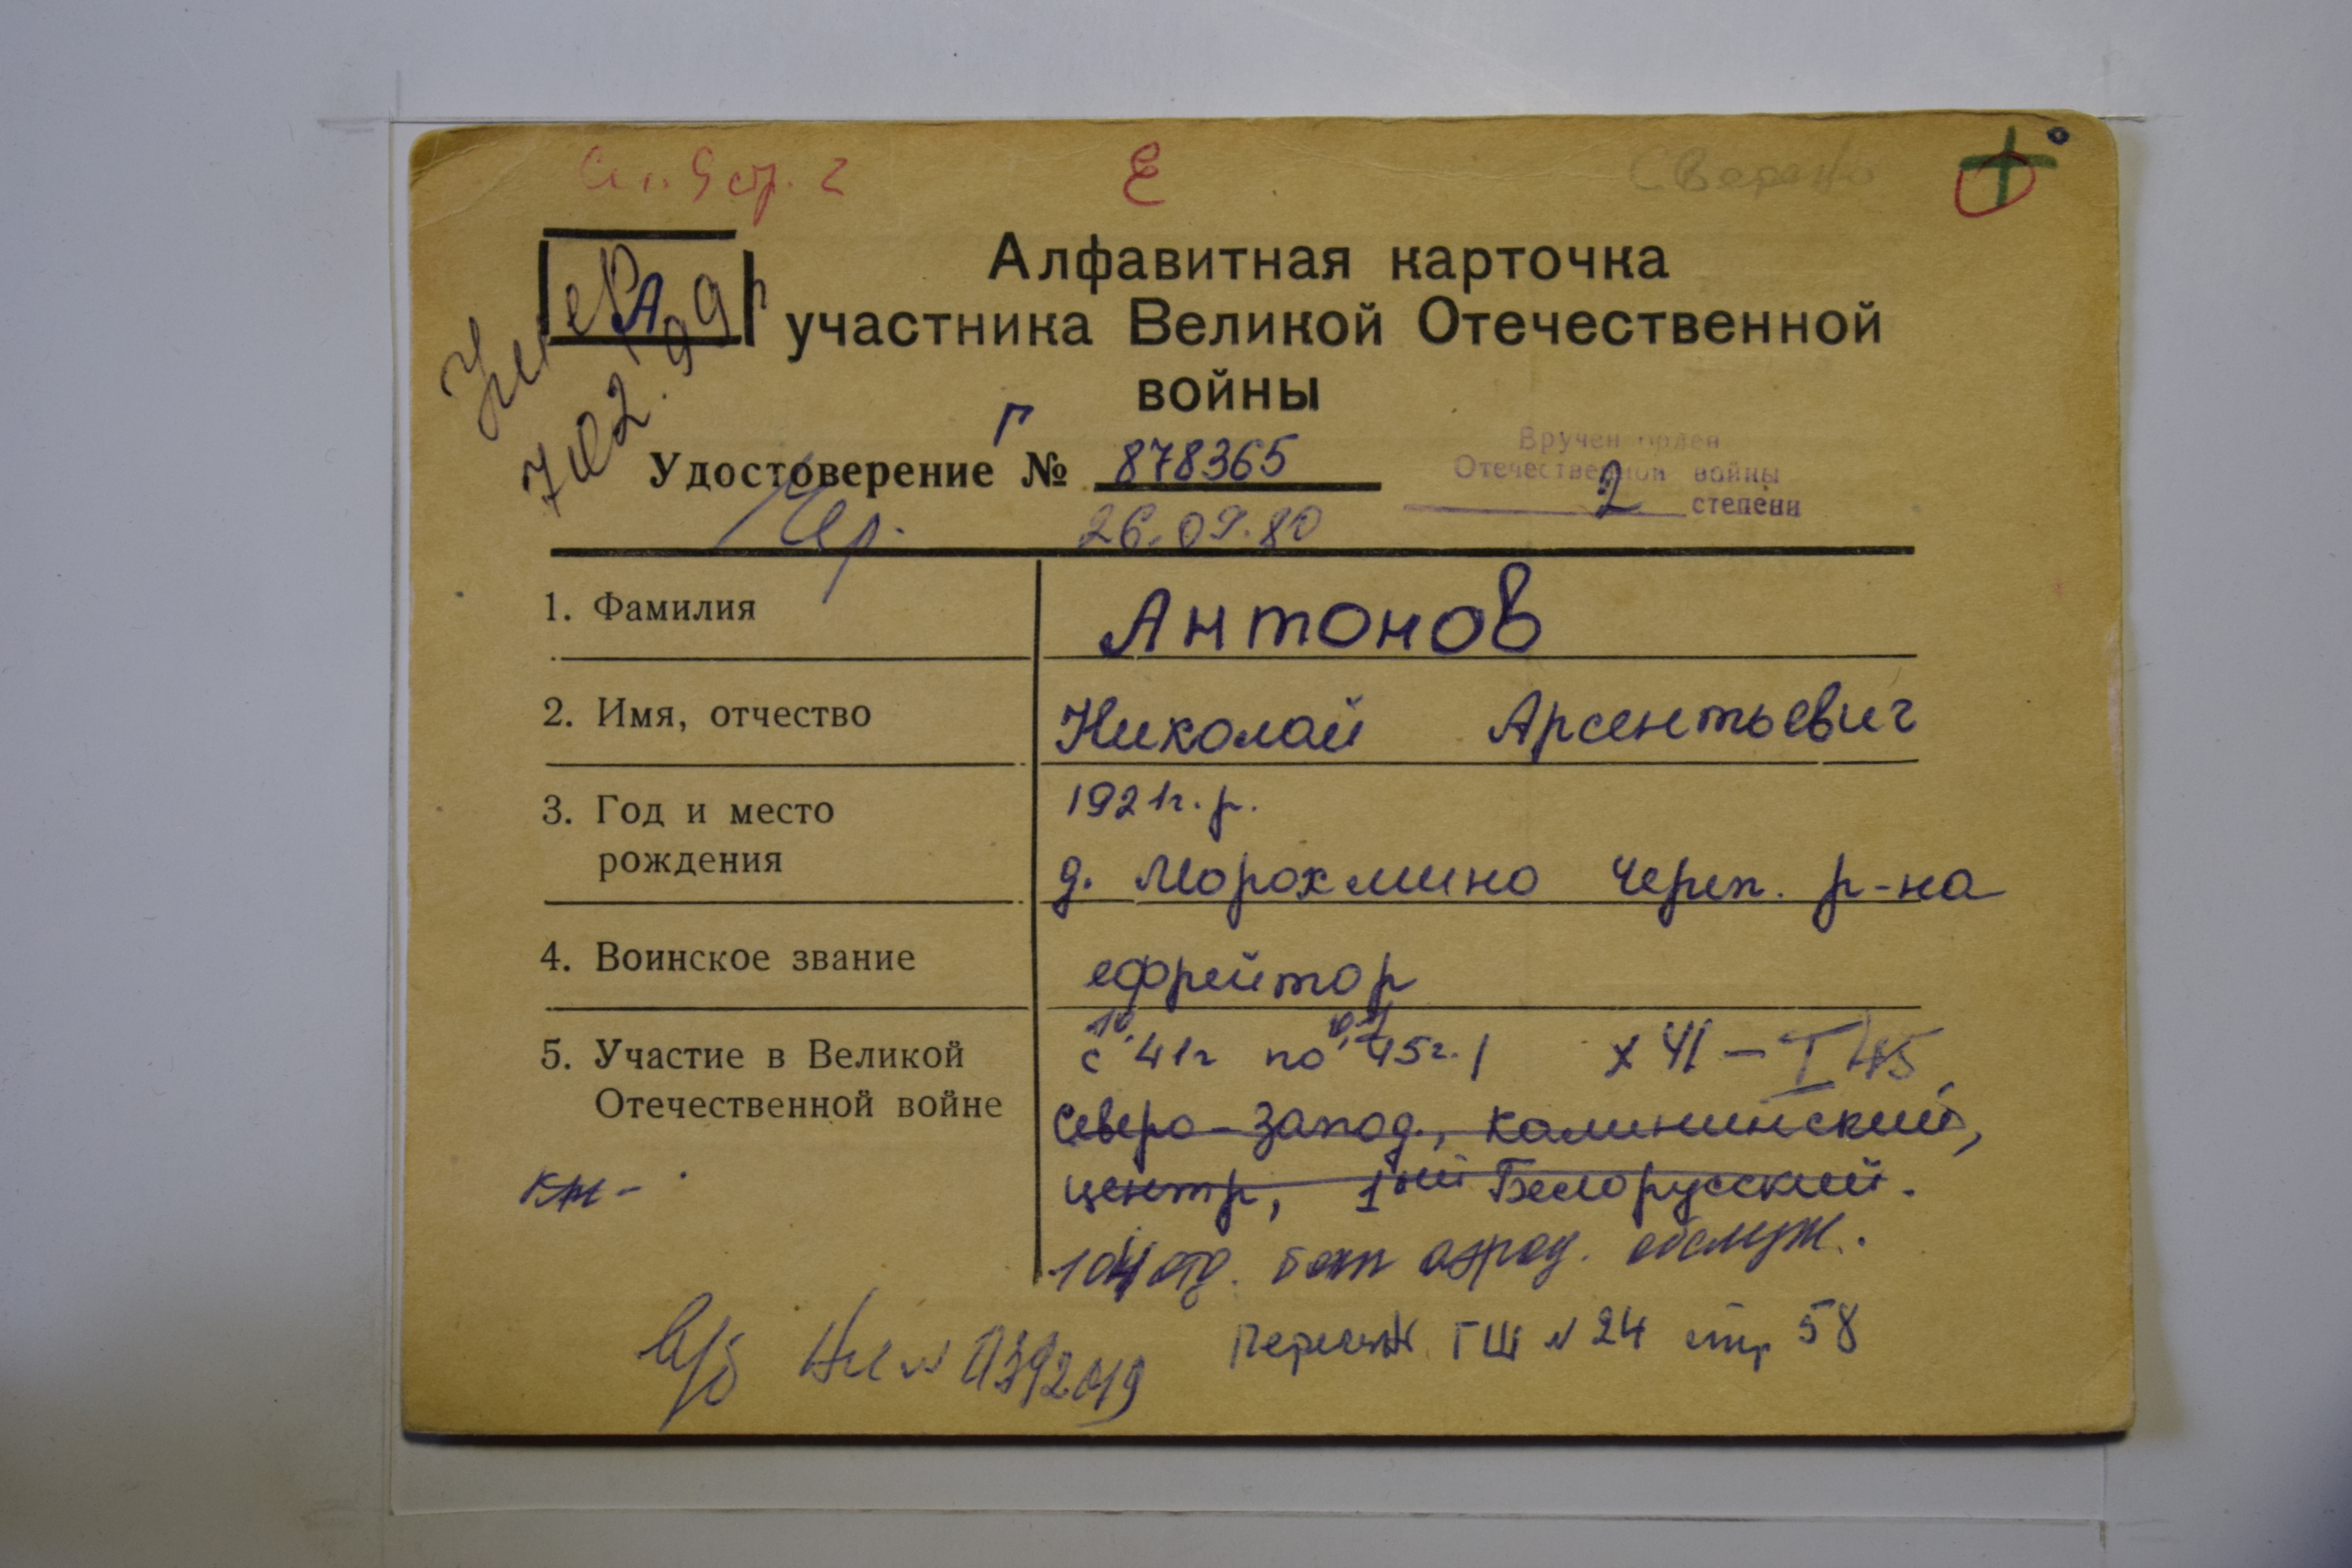 Е
А
Алфавитная карточка
участника Великой Отечественной
войны
Г
Удостоверение № 878365
Вручен орден
Отечественной войны
2 степени
26.09.80
1. Фамилия Антонов
2. Имя, отчество Николай Арсентьевич
3. Год и место
рождения
1921г.р.
д. Морохмино Череп. р-на
4. Воинское звание ефрейтор
5. Участие в Великой
Отечественной войне
с 41г по 45г. X 41 – I 45
Северо-запад., Калининский,
центр, 1ый Белорусский.
104 отд. бат аэрод. обслуж.
Перечн ГШ N 24 стр 58